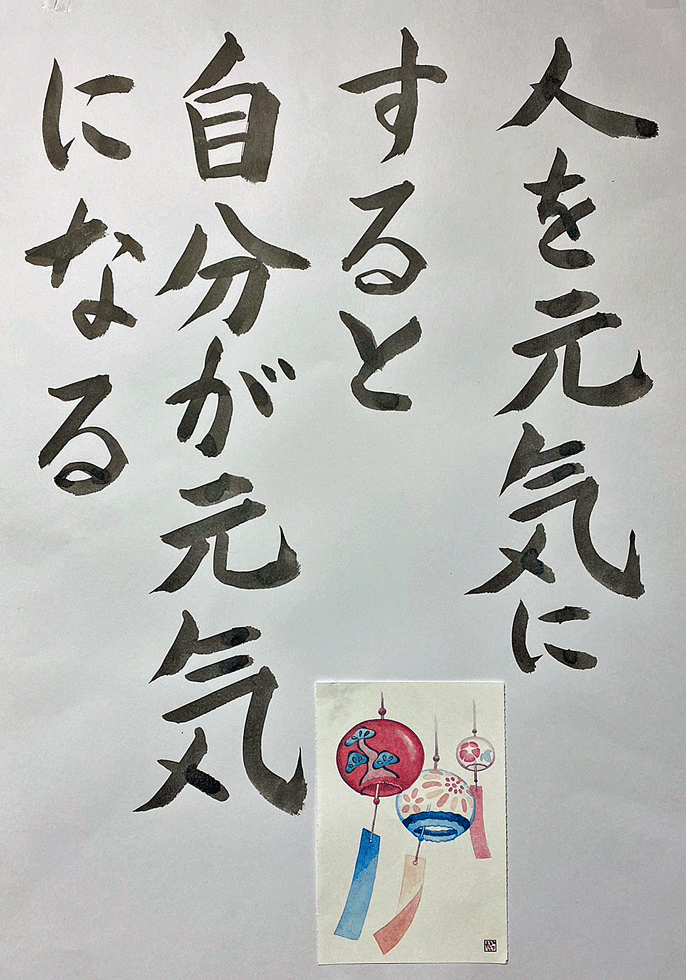 人を元気に
すると
自分が元気
になる